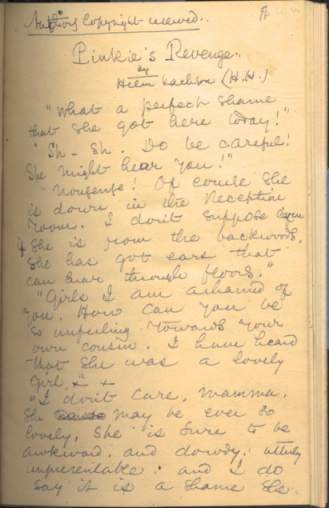 Authors Copyright reserved..
Pinkie's Revenge..
by
Helen Jackson (H.H.)
"What a perfect shame
that she got here today!"
"Sh - Sh. Do be careful!
She might hear you!"
"Nonsense! Of course she
is down in the Reception
room. I don't suppose even
if she is from the backwoods,
she has got ears that
can hear through floors."
"Girls I am ashamed of
you. How can you be
so unfeeling towards your
own cousin. I have heard
that she was a lovely
girl,
"I don't care, Mamma,
She may be ever so
lovely, she is sure to be
awkward, and dowdy, utterly
unpresentable: and I do
say it is a shame she..